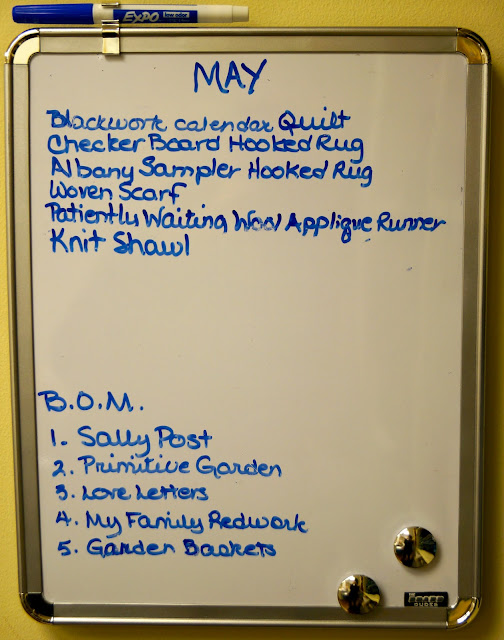 EXPO low odor
MAY
Blackwork calendar Quilt
Checker Board Hooked Rug
Albany Sampler Hooked Rug
Woven Scarf
Patiently Waiting Wool Applique Runner
Knit Shawl
B.O.M.
1. Sally Post
2. Primitive Garden
3. Love Letters
4. My Family Redwork
5. Garden Baskets
THE BOARD
DUDES